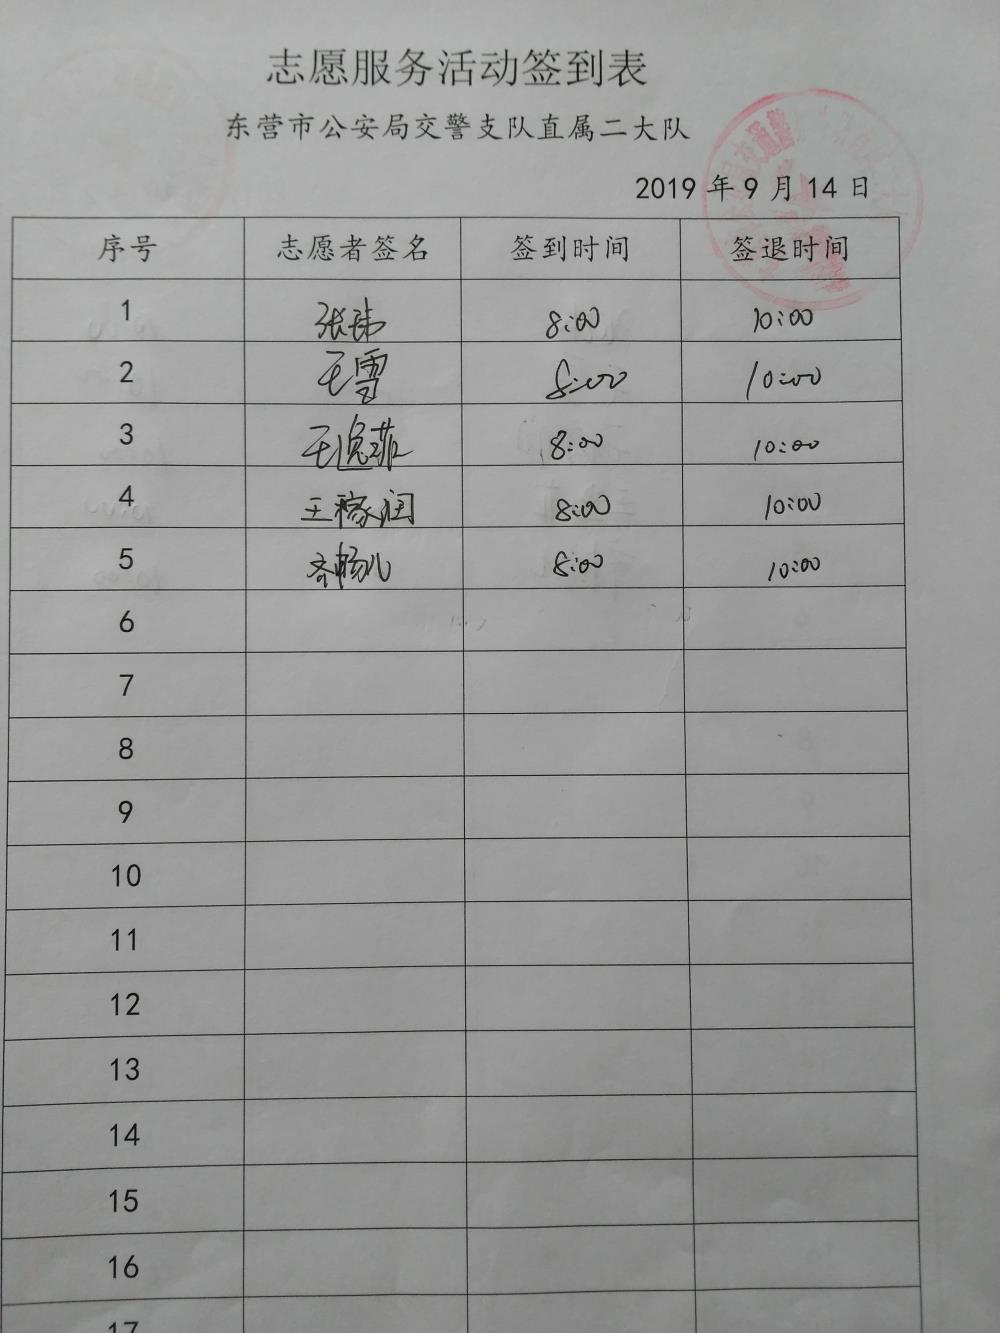 志愿服务活动签到表
东营市公安局交警支队直属二大队
2019 年 9 月 14 日
序号 志愿者签名 签到时间 签退时间
1 张玮 8:00 10:00
2 王雪 8:00 10:00
3 王逸菲 8:00 10:00
4 王稼润 8:00 10:00
5 齐畅儿 8:00 10:00
6
7
8
9
10
11
12
13
14
15
16
17